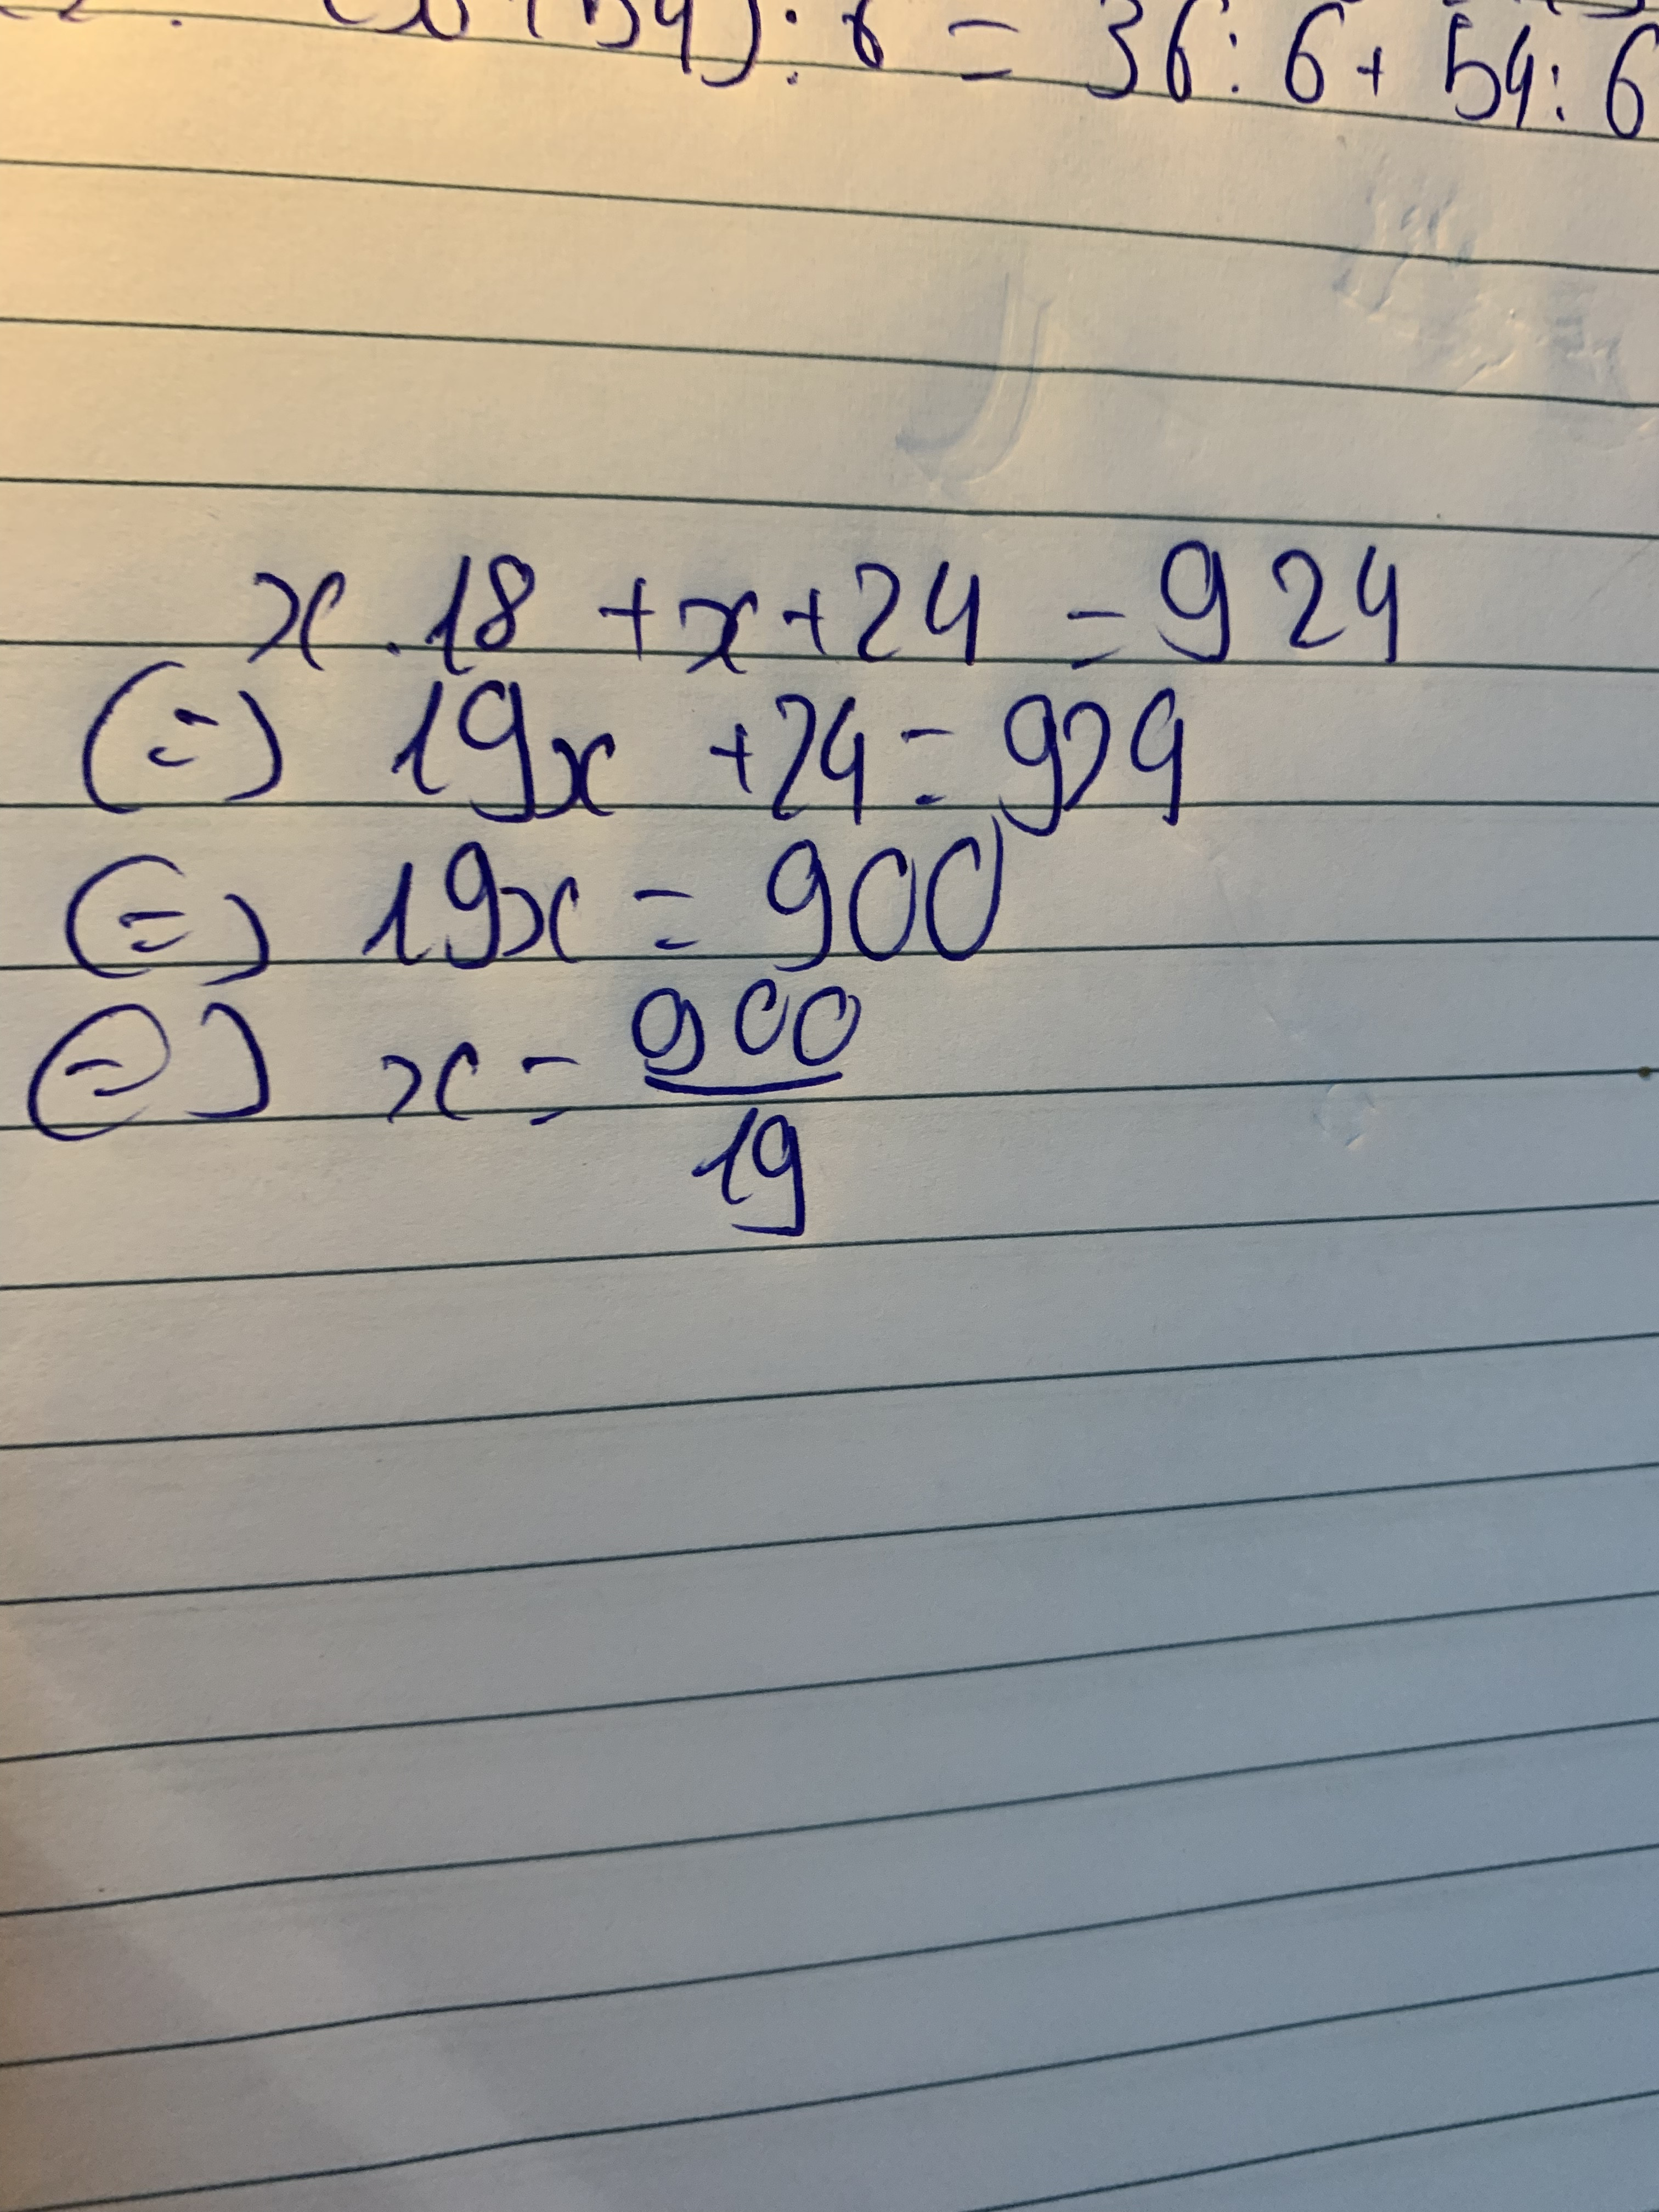 54) : 6 = 36 : 6 + 54 : 6
x . 18 + x + 24 = 924
(=) 19x + 24 = 924
(=) 19x = 900
(=) x = 900/19